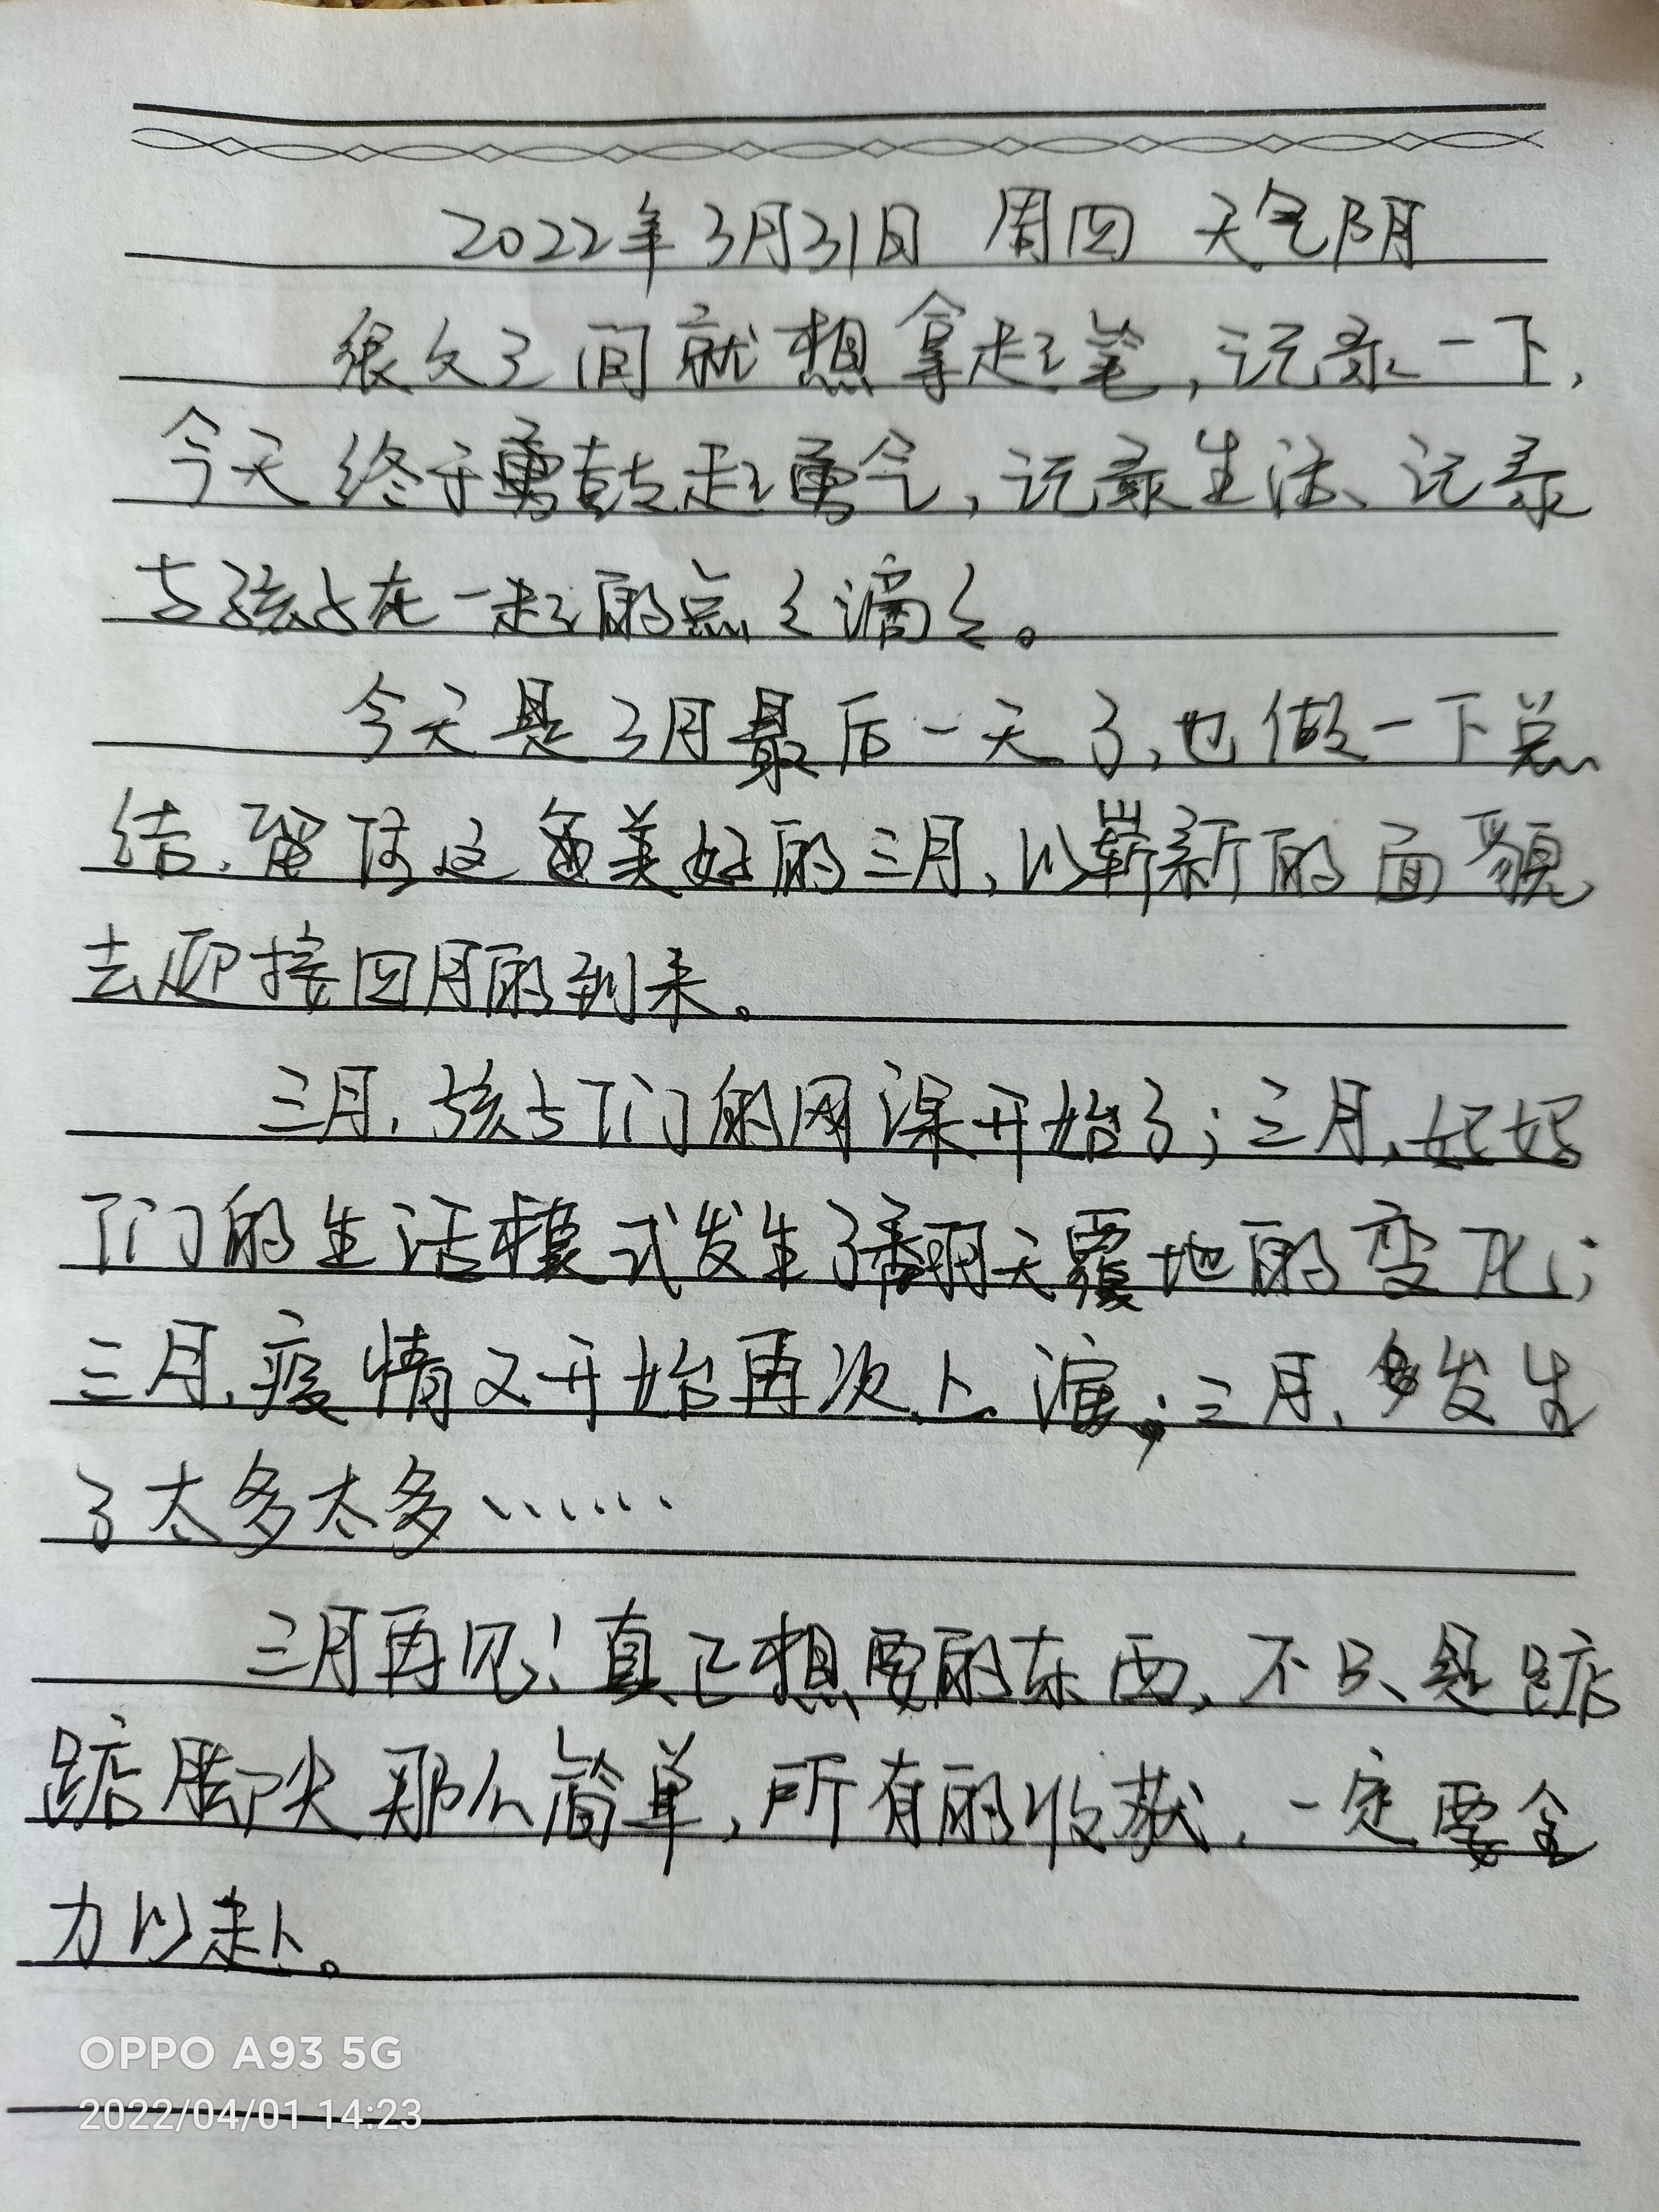 2022年3月31日 周四 天气阴
很久之间就想拿起笔,记录一下,
今天终于鼓起勇气,记录生活、记录
与孩子在一起的点点滴滴。
今天是3月最后一天了,也做一下总
结,留住这美好的三月,以崭新的面貌
去迎接四月的到来。
三月,孩子们的网课开始了;三月,妈妈
们的生活模式发生了翻天覆地的变化;
三月,疫情又开始再次上演;三月,发生
了太多太多……
三月再见!真正想要的东西,不只是踮
踮脚尖那么简单,所有的收获,一定要全
力以赴。
OPPO A93 5G
2022/04/01 14:23